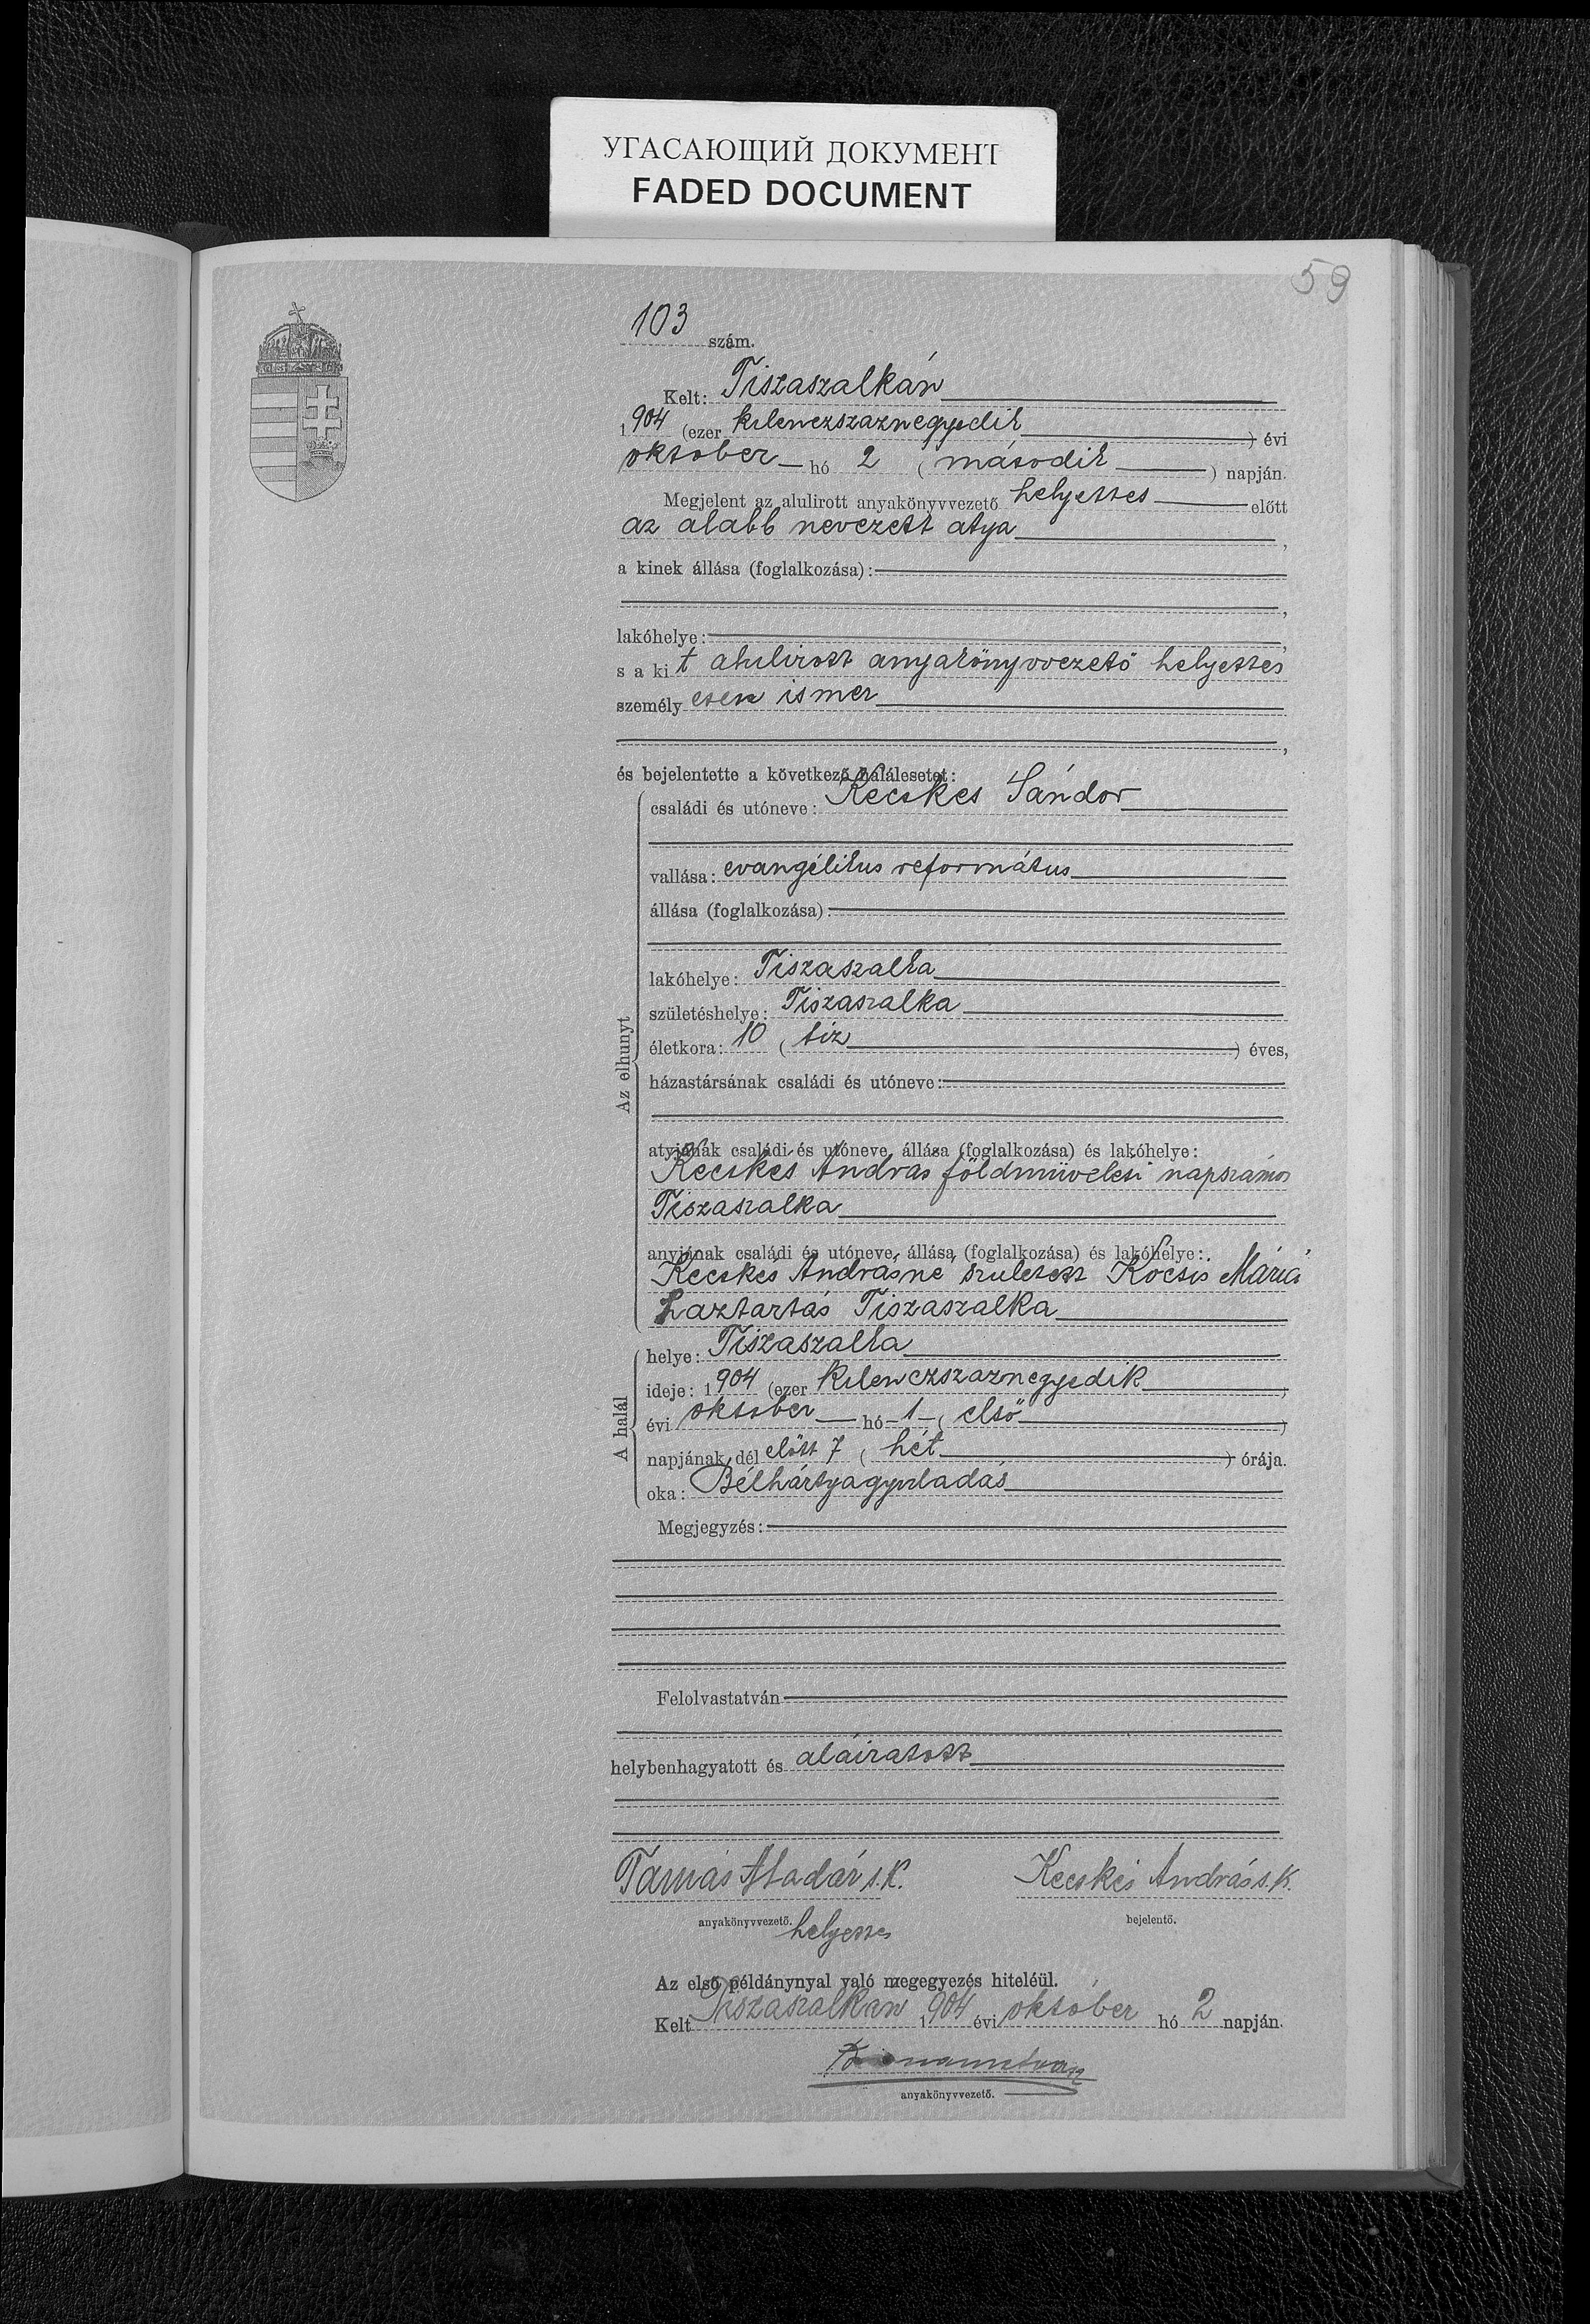 УГАСАЮЩИЙ ДОКУМЕНТ
FADED DOCUMENT
59
103 szám.
Kelt: Tiszaszalkán
1904 (ezer kilenczszaznegyedik ) évi
oktober hó 2 ( második ) napján.
Megjelent az alulirott anyakönyvvezető helyettes előtt
az alább nevezett atya ,
a kinek állása (foglalkozása):
,
lakóhelye: ,
s a kit alulirott anyakönyvvezető helyettes
személyesen ismer
,
és bejelentette a következő halálesetet:
Az elhunyt
családi és utóneve: Kecskes Sándor
vallása: evangélikus református
állása (foglalkozása):
lakóhelye: Tiszaszalka
születéshelye: Tiszaszalka
életkora: 10 ( tiz ) éves,
házastársának családi és utóneve:
atyjának családi és utóneve, állása (foglalkozása) és lakóhelye:
Kecskés András földmüvelesi napszámos
Tiszaszalka
anyjának családi és utóneve, állása (foglalkozása) és lakóhelye:
Kecskés Andrásné született Kocsis Mária
haztartás Tiszaszalka
A halál
helye: Tiszaszalka
ideje: 1904 (ezer kilenczszaznegyedik )
évi oktober hó 1 ( első )
napjának dél előtt 7 ( hét ) órája.
oka: Bélhártyagyuladás
Megjegyzés:
Felolvastatván
helybenhagyatott és aláiratott
Tamás Aladár s.k. Kecskés András s.k.
anyakönyvvezető. helyettes bejelentő.
Az első példánynyal való megegyezés hiteléül.
Kelt Tiszaszalkán 1904 évi október hó 2 napján.
anyakönyvvezető.